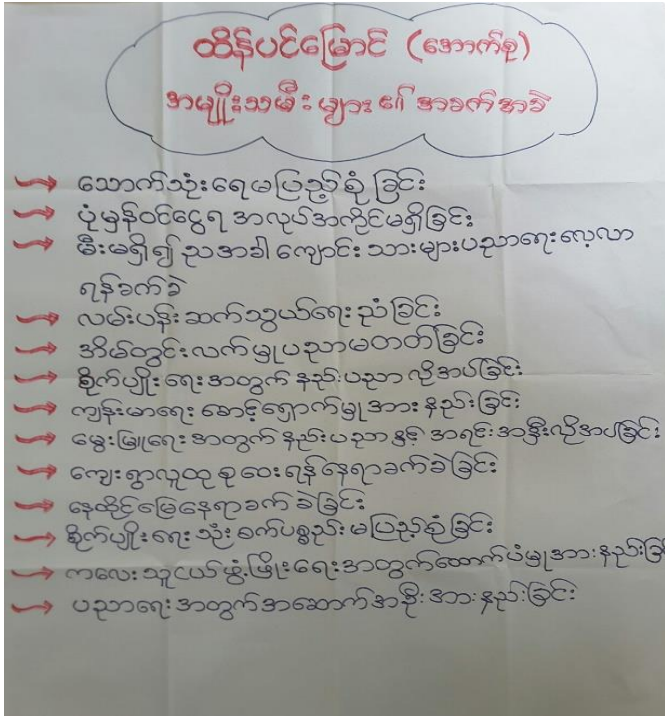 ထိန်ပင်မြောင် (အောက်စု)
အမျိုးသမီးများ၏ အခက်အခဲ
သောက်သုံးရေမပြည့်စုံခြင်း
ပုံမှန်ဝင်ငွေရ အလုပ်အကိုင်မရှိခြင်း
မီးမရှိ၍ ညအခါ ကျောင်းသားများပညာရေးလေ့လာ
ရန်ခက်ခဲ
လမ်းပန်းဆက်သွယ်ရေးညံ့ခြင်း
အိမ်တွင်းလက်မှုပညာမတတ်ခြင်း
စိုက်ပျိုးရေးအတွက် နည်းပညာ လိုအပ်ခြင်း
ကျန်းမာရေး စောင့်ရှောက်မှုအားနည်းခြင်း
မွေးမြူရေးအတွက် နည်းပညာနှင့် အရင်းအနှီးလိုအပ်ခြင်း
ကျေးရွာလူထု စုဝေးရန်နေရာခက်ခဲခြင်း
နေထိုင်မြေနေရာခက်ခဲခြင်း
စိုက်ပျိုးရေးသုံးစက်ပစ္စည်းမပြည့်စုံခြင်း
ကလေးသူငယ်ဖွံ့ဖြိုးရေးအတွက်ထောက်ပံ့မှုအားနည်းခြင်း
ပညာရေးအတွက်အဆောက်အဦးအားနည်းခြင်း